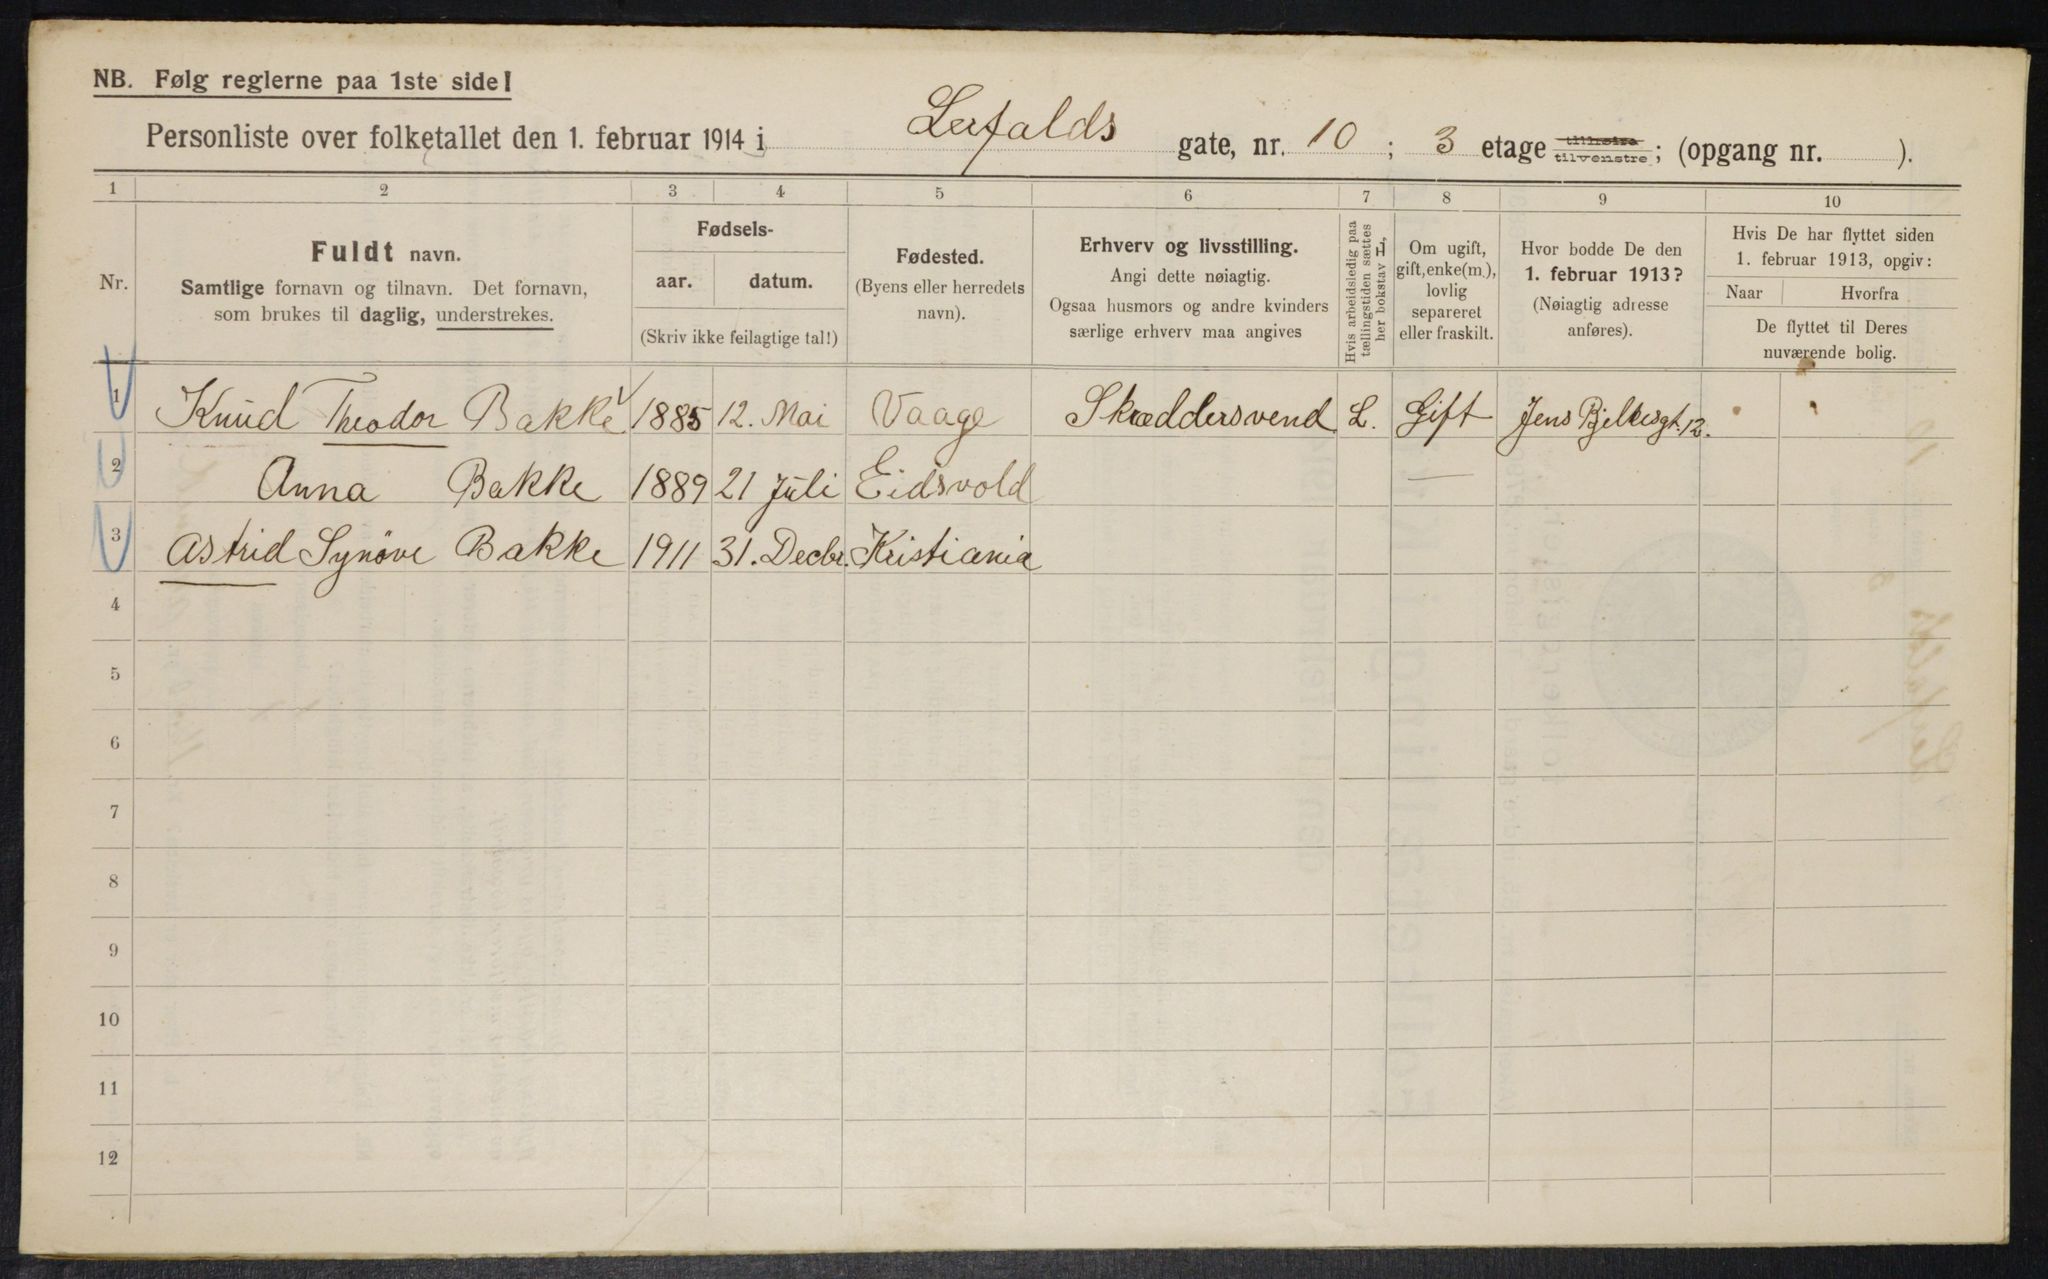 NB. Følg reglerne paa 1ste side!
Personliste over folketallet den 1. februar 1914 i Lerfalds gate, nr. 10 ; 3 etage tilhøire tilvenstre; (opgang nr. ).
1 2 3 4 5 6 7 8 9 10
Nr.
Fuldt navn.
Samtlige fornavn og tilnavn. Det fornavn,
som brukes til daglig, understrekes.
Fødsels-
aar. datum.
(Skriv ikke feilagtige tal!)
Fødested.
(Byens eller herredets
navn).
Erhverv og livsstilling.
Angi dette nøiagtig.
Ogsaa husmors og andre kvinders
særlige erhverv maa angives
Hvis arbeidsledig paa
tællingstiden sættes
her bokstav L,
Om ugift,
gift, enke(m.),
lovlig
separeret
eller fraskilt.
Hvor bodde De den
1. februar 1913?
(Nøiagtig adresse
anføres).
Hvis De har flyttet siden
1. februar 1913, opgiv:
Naar Hvorfra
De flyttet til Deres
nuværende bolig.
1 Knud Theodor Bakke 1885 12. Mai Vaage Skræddersvend L. Gift Jens Bjelkesgt. 12.
2 Anna Bakke 1889 21 Juli Eidsvold —
3 Astrid Synøve Bakke 1911 31. Decbr. Kristiania
4
5
6
7
8
9
10
11
12